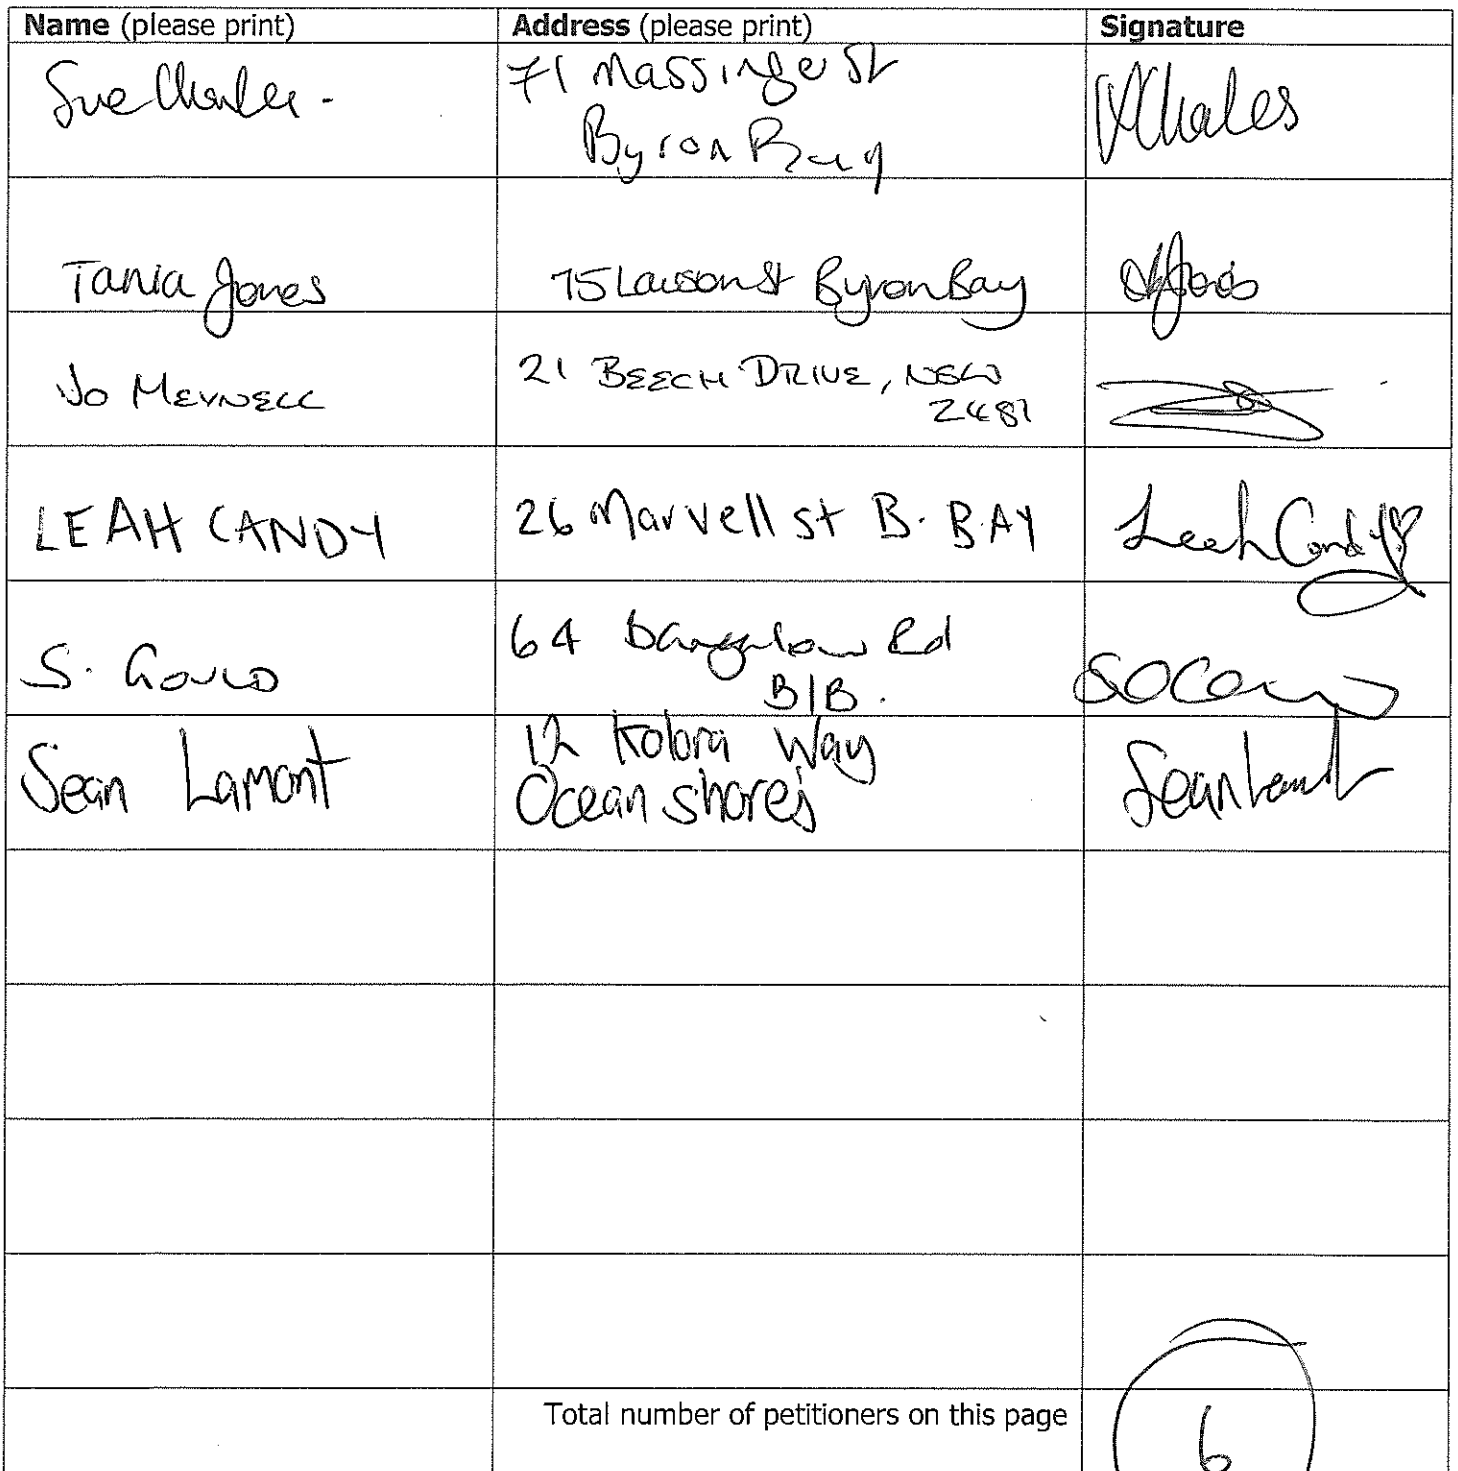 Name (please print) Address (please print) Signature
Sue Charles. 71 Massinger St
Byron Bay
Tania Jones 75 Lawson St Byron Bay
Jo Meynell 21 BEECH DRIVE, NSW
2481
LEAH CANDY 26 Marvell st B. BAY Leah Candy
S. Gould 64 Bangalow Rd
B/B.
Sean Lamont 12 Kolora Way Sean Lamont
Ocean shores
Total number of petitioners on this page 6